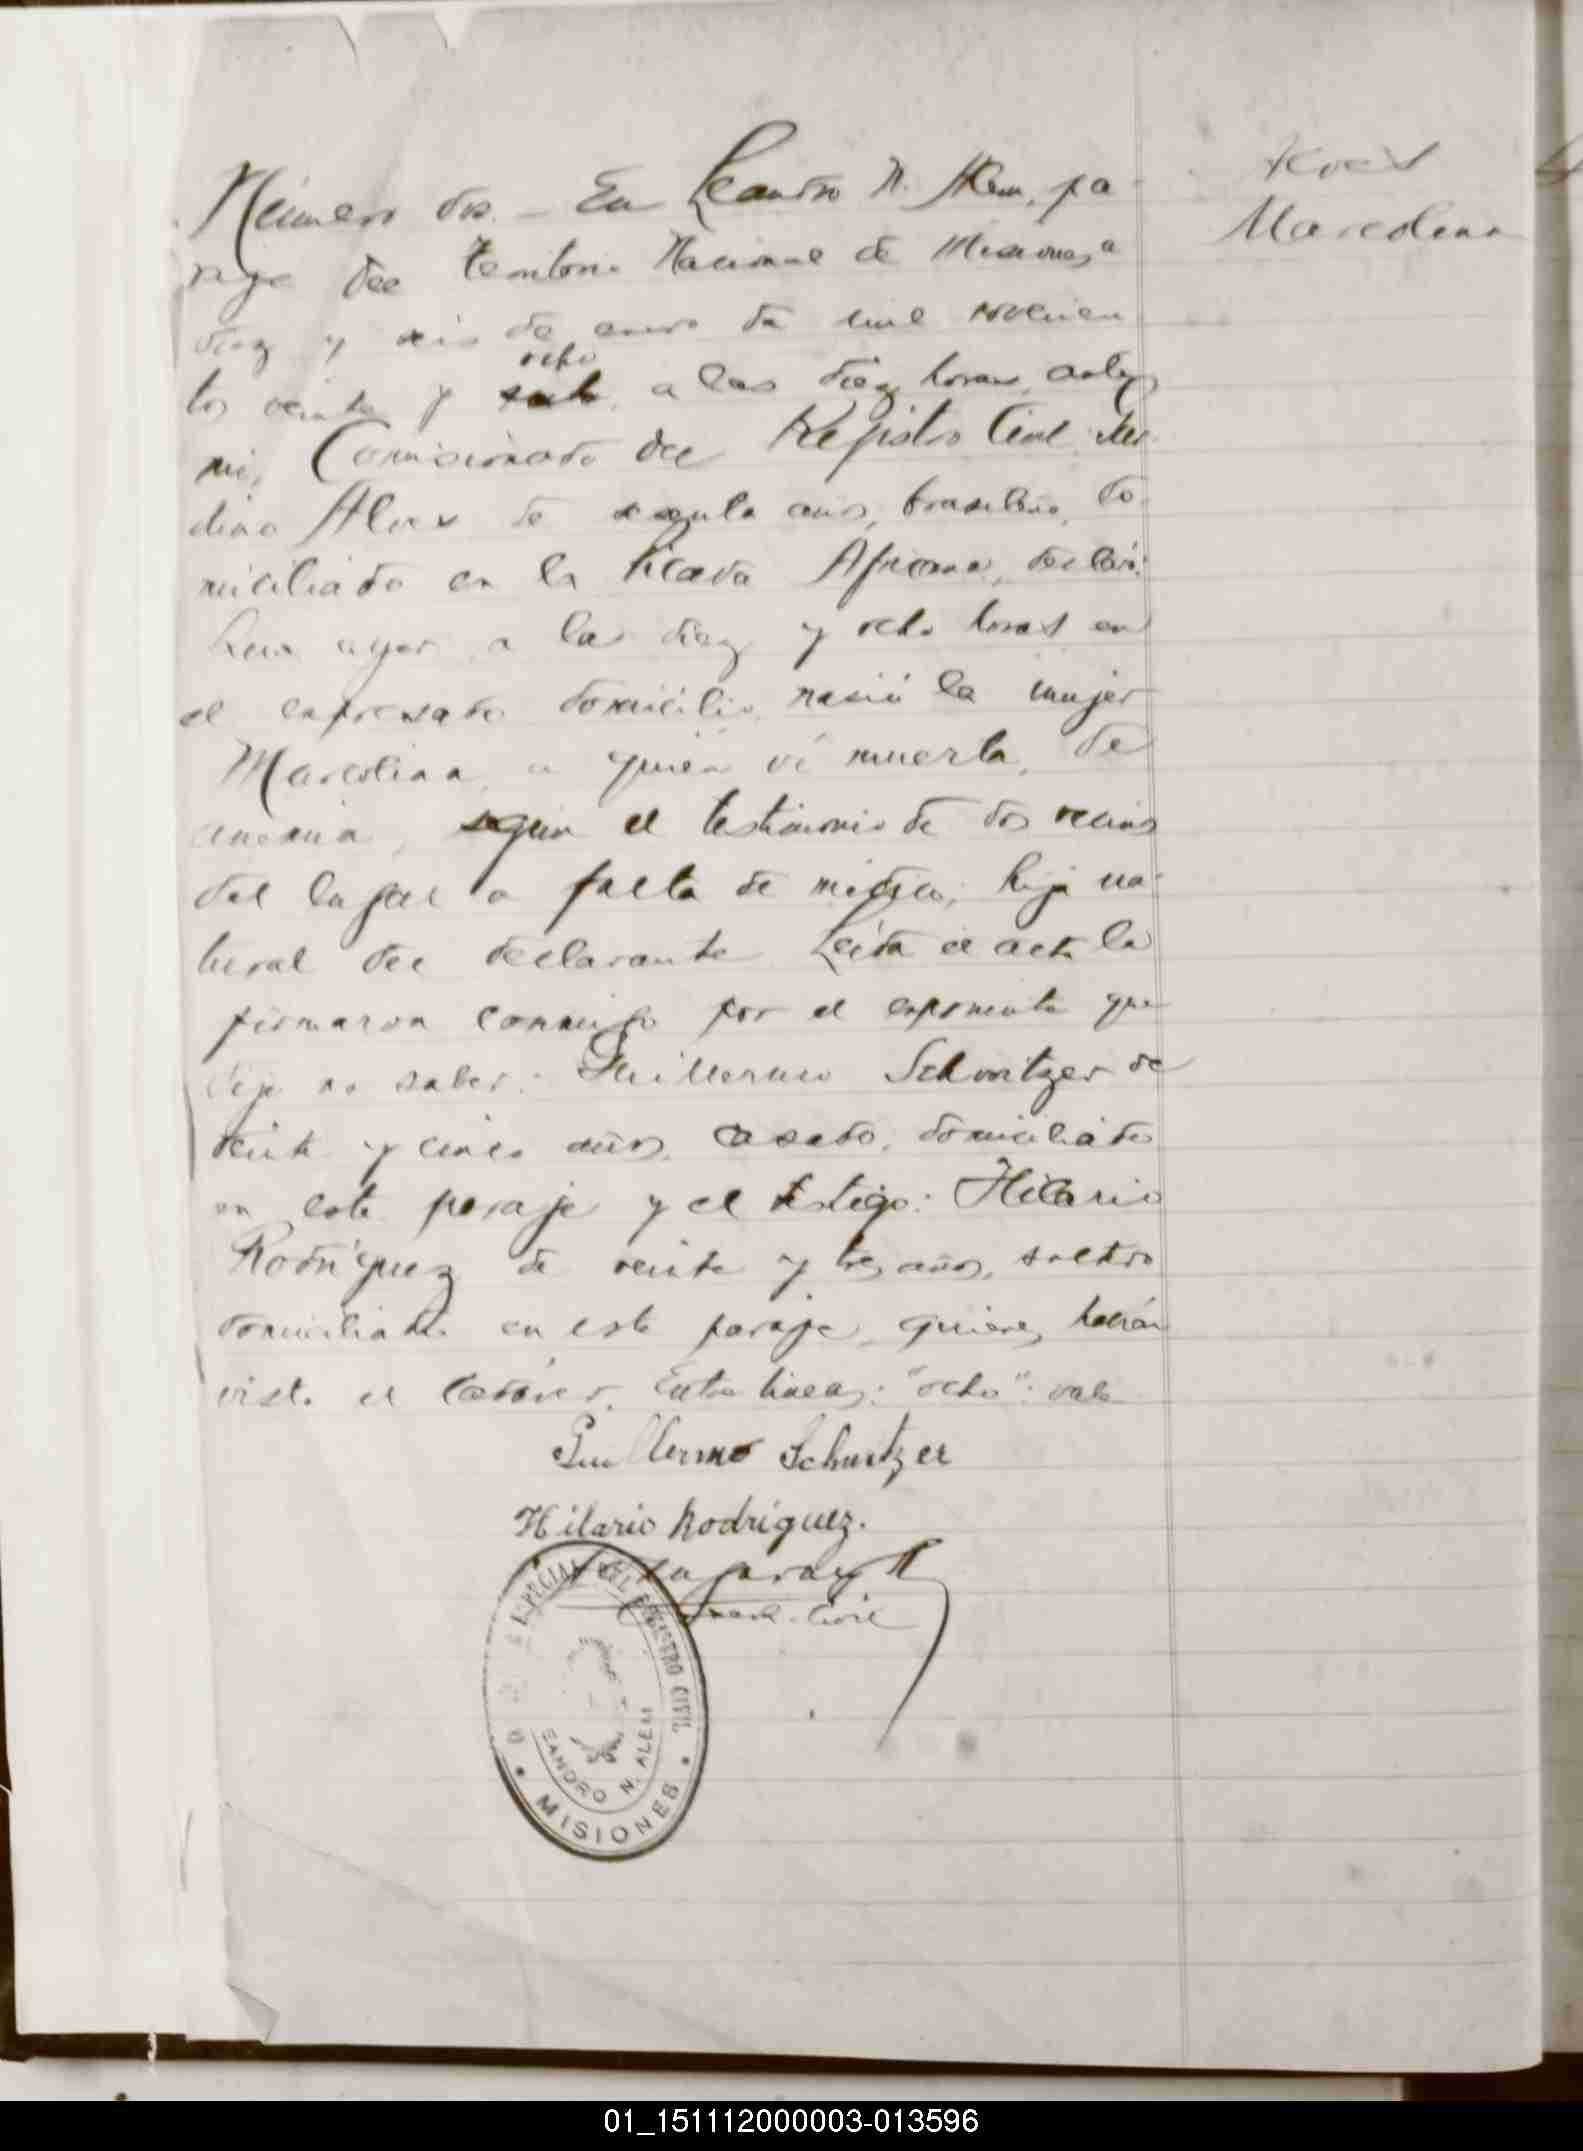 Alves
Marcolina
Número dos. - En Leandro N. Alem, pa-
rage del territorio Nacional de Misiones, a
diez y seis de enero de mil novecien
tos veinte y ocho siete, a las diez horas, ante
mi, Comicionado del Registro Civil,
dino Alves de sesenta años, brasileño, do-
miciliado en la Picada Africana, declaró:
Que ayer a las diez y ocho horas en
el expresado domicilio nació la mujer
Marcolina, a quien vi muerta, de
anemia, segun el testimonio de dos vecinos
del lugar a falta de médico; hija na-
tural del declarante. Leida el acta la
firmaron conmigo por el exponente que
dijo no saber: Guillermo Schwitzer de
veinte y cinco años, casado, domiciliado
en este paraje y el testigo: Hilario
Rodríguez de veinte y tres años, soltero
domiciliado en este paraje, quienes habían
visto el cadáver. Entre lineas: "ocho": vale
Guillermo Schwitzer
Hilario Rodríguez.
Civil
ESPECIAL DEL REGISTRO CIVIL
EANDRO N. ALEM
• MISIONES •
01_151112000003-013596